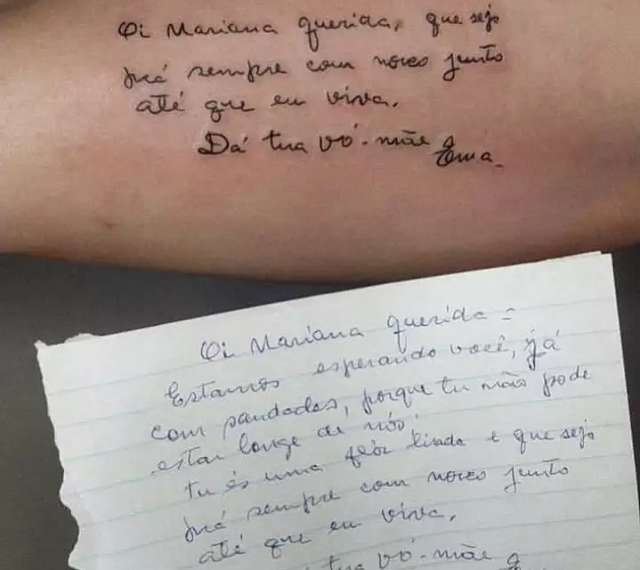 Oi Mariana querida, que sejo
pra sempre com noses junto
até que eu viva.
Dá tua vó-mãe Ema
Oi Mariana querida =
Estamos esperando você, já
com saudades, porque tu não pode
estar longe de nós!
tu és uma flôr linda e que sejo
pra sempre com noses junto
até que eu viva.
tua vó-mãe